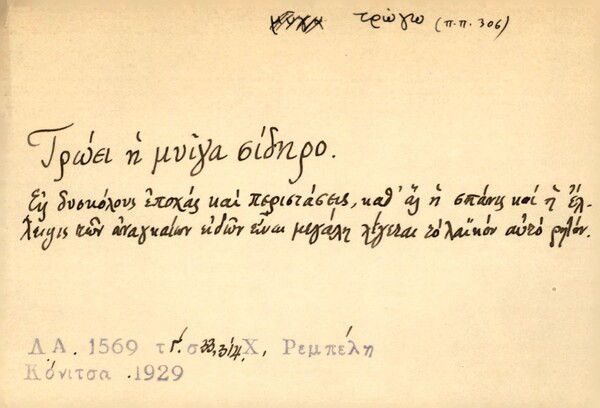 τρώγω (π.π. 306)
Τρώει ἡ μυίγα σίδηρο.
Εἰς δυσκόλους ἐποχάς καί περιστάσεις, καθ' ἅς ἡ σπάνις καί ἡ ἔλ-
λειψις τῶν ἀναγκαίων εἰδῶν εἶναι μεγάλη λέγεται τό λαϊκόν αὐτό ρητόν.
Λ Α. 1569 τ. Γ. σ. 314. Χ, Ρεμπέλη
Κόνιτσα .1929